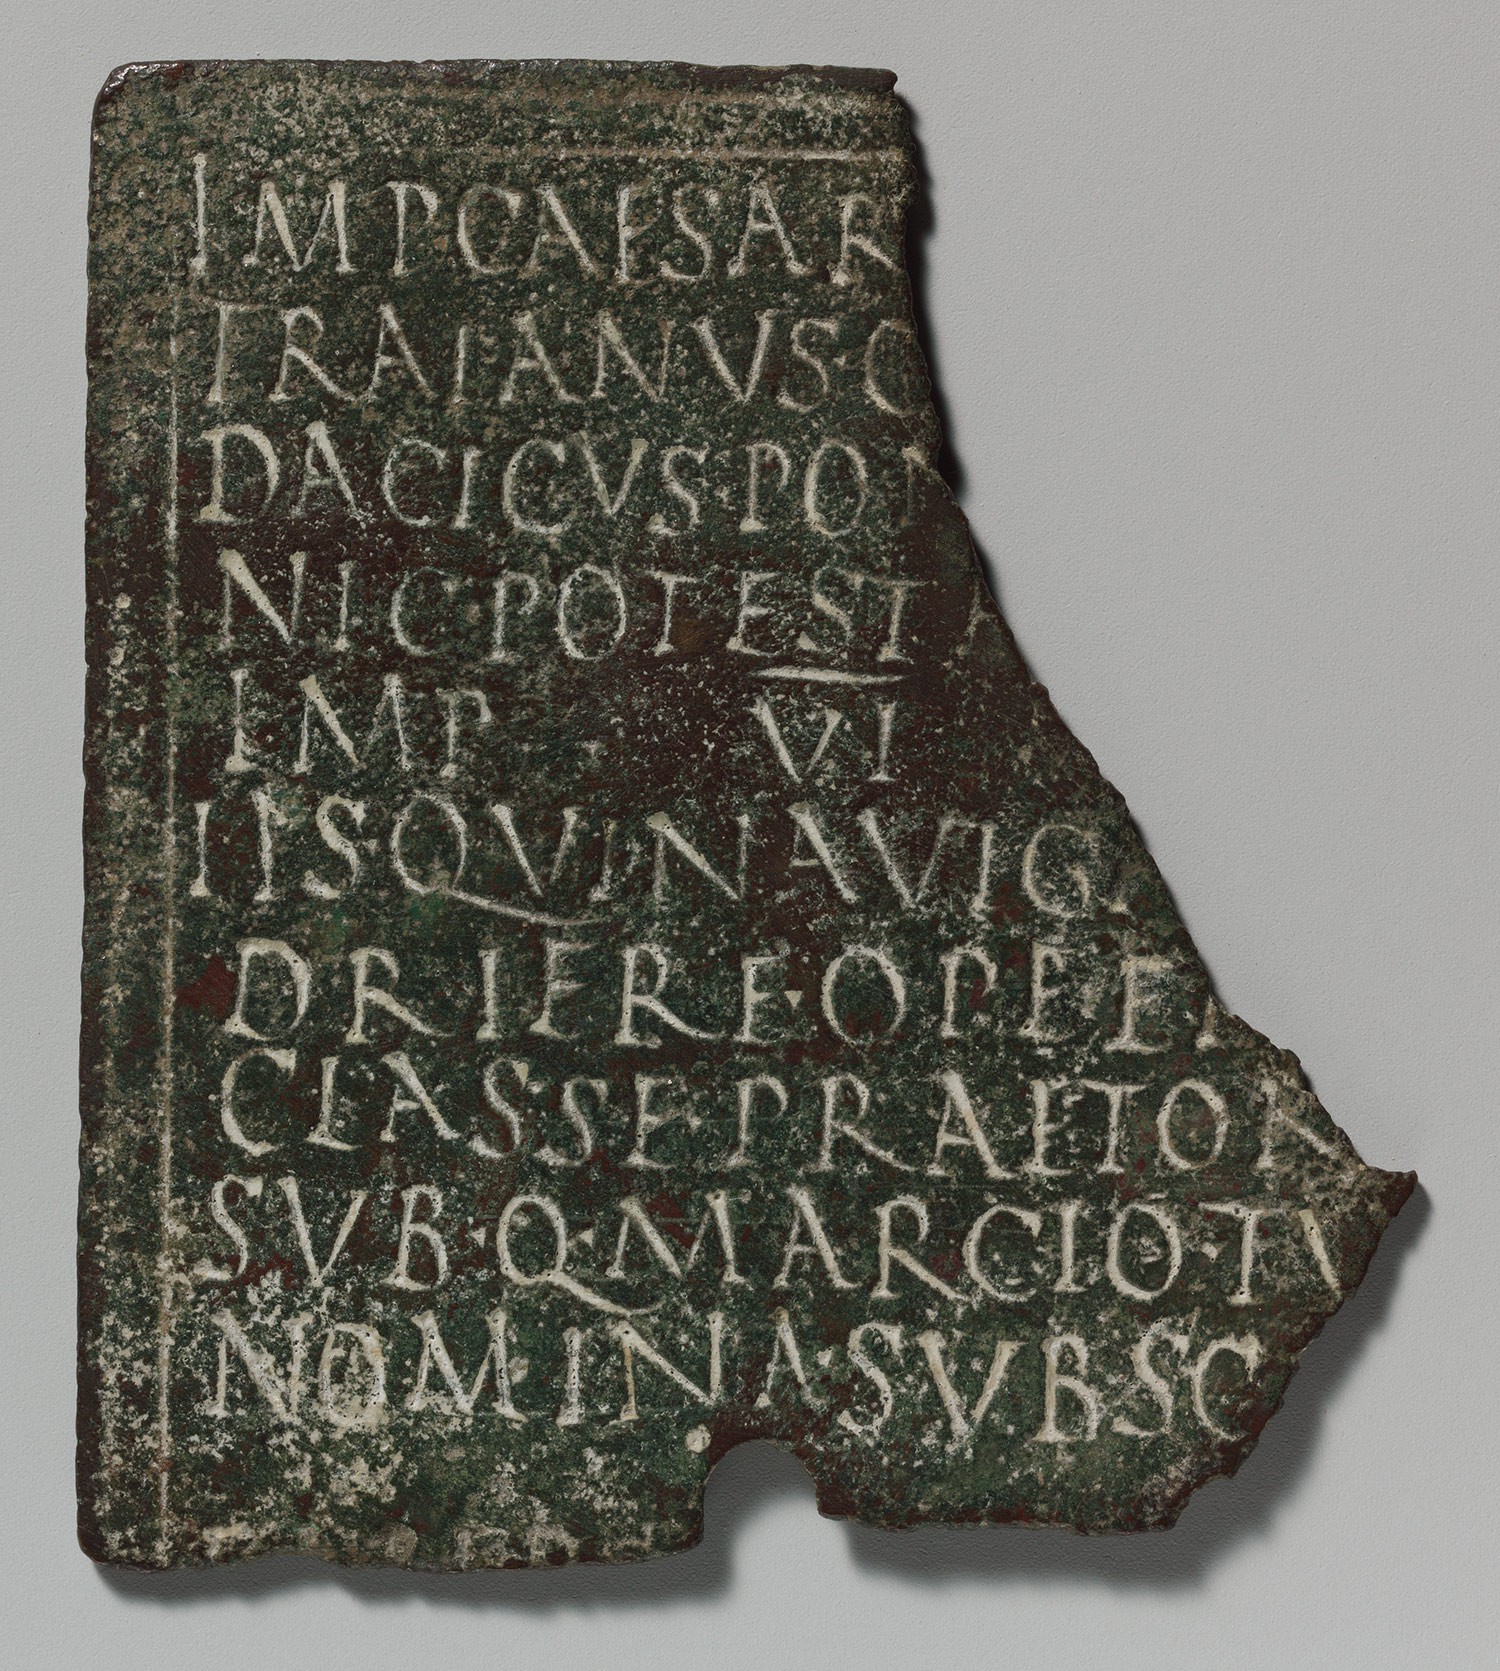 IMP CAESAR
TRAIANVS · G
DACICVS · PON
NIC POTEST A
IMP VI
IIS · QVI NAVIG
DRIERE · Q PEE
CLASSE · PRAETOR
SVB · Q · MARCIO · TV
NOMINA · SVBSC